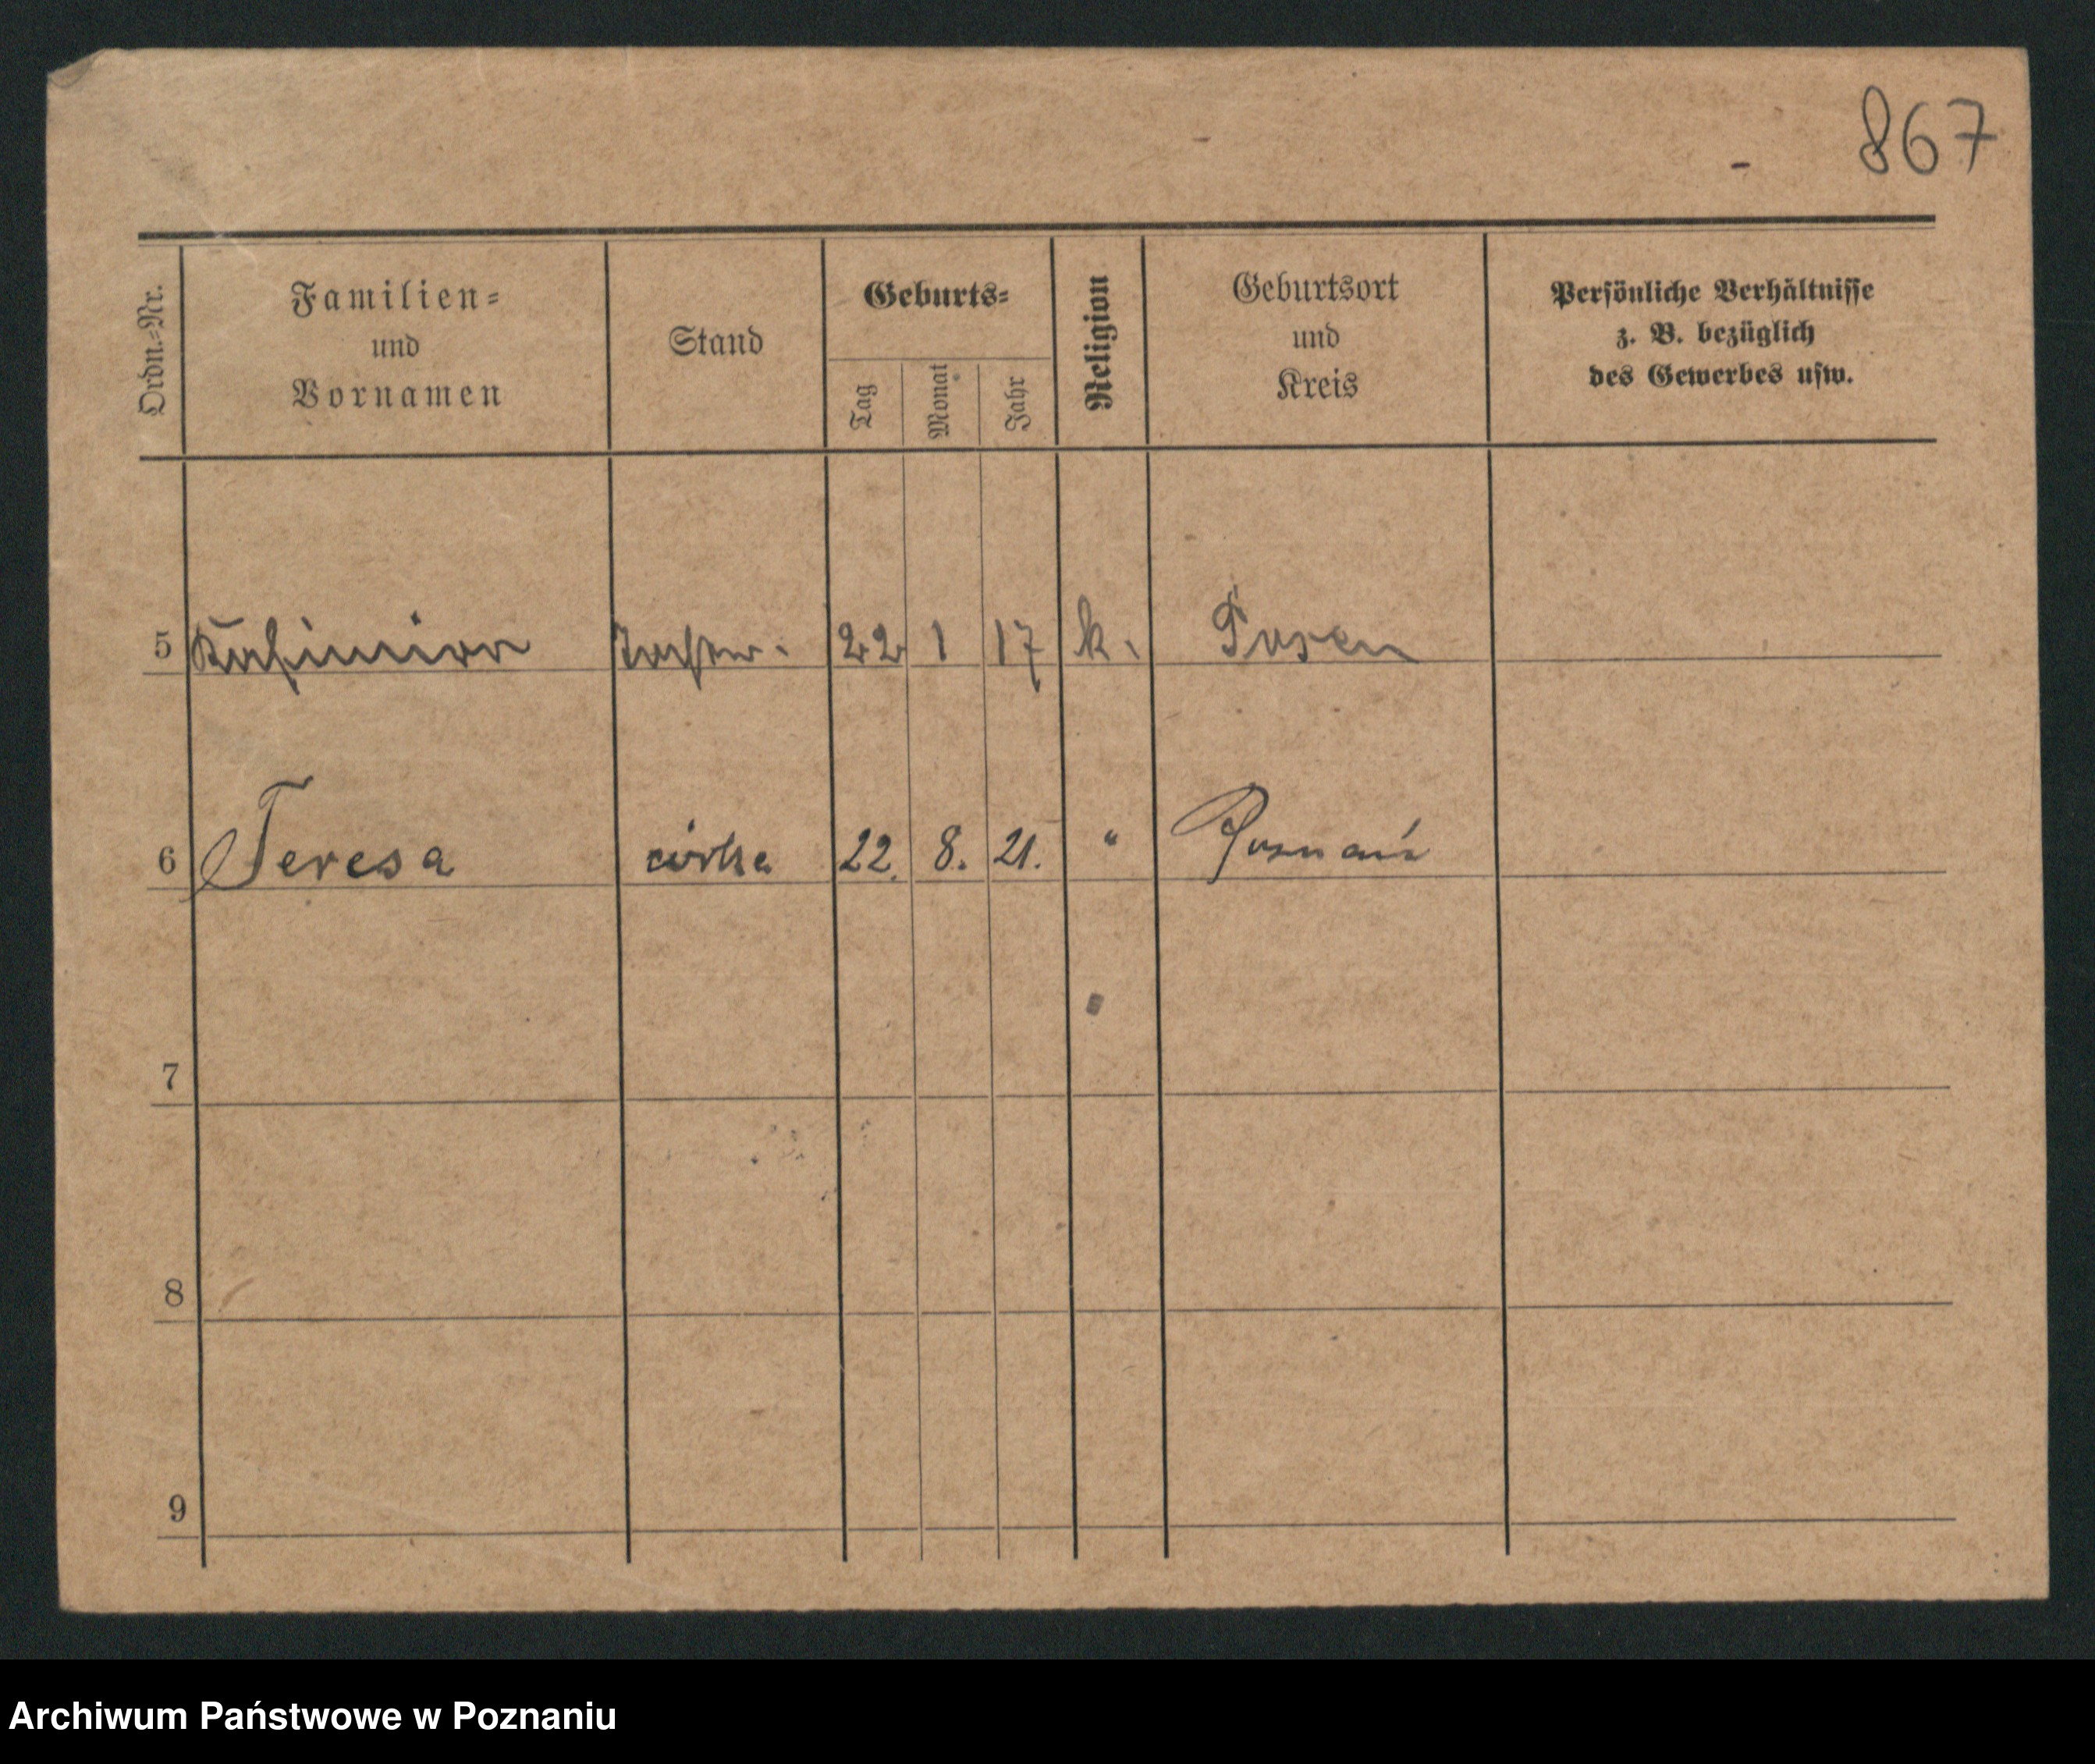 867
Ordn.-Nr.
Familien-
und
Vornamen
Stand
Geburts-
Tag
Monat
Jahr
Religion
Geburtsort
und
Kreis
Persönliche Verhältnisse
z. B. bezüglich
des Gewerbes usw.
5 22 1 17 k. Posen
6 Teresa córka 22. 8. 21. " Poznań
7
8
9
Archiwum Państwowe w Poznaniu